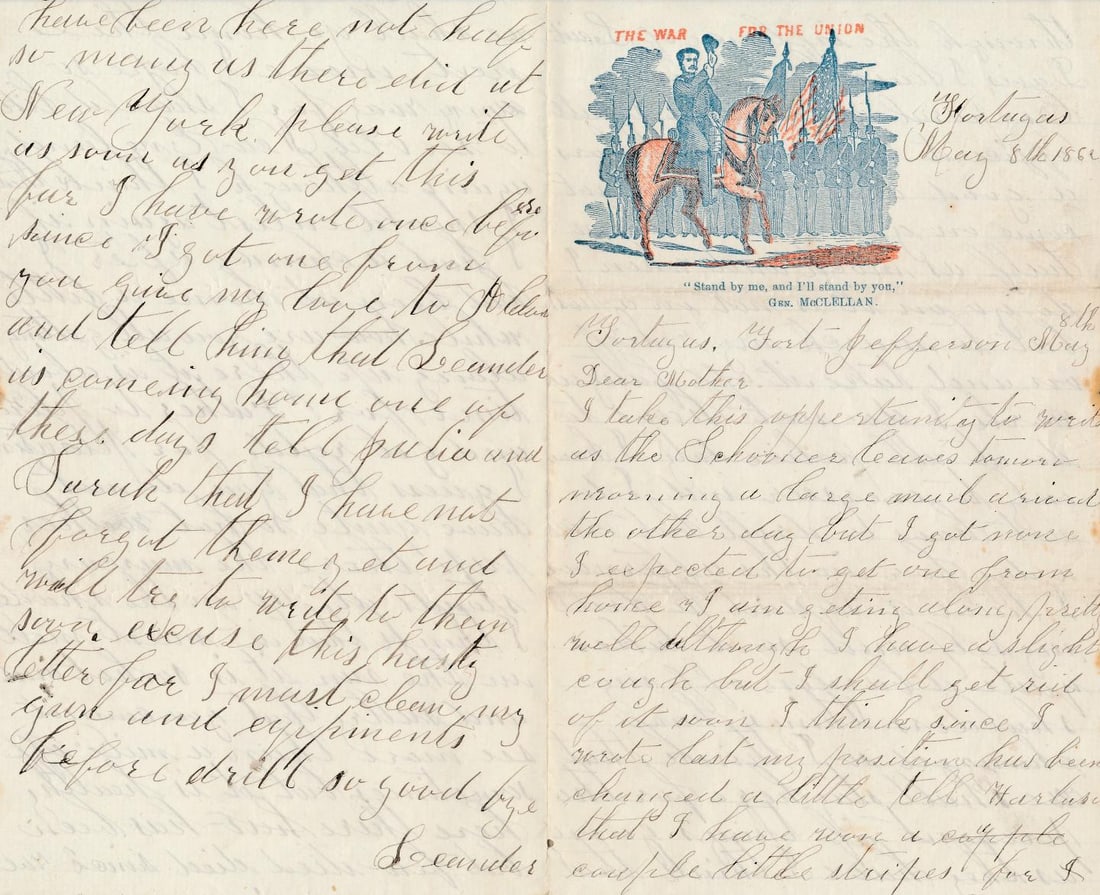 have been here not half
so many as there did at
New York. please write
as soon as you get this
for I have wrote once before
since I got one from
you give my love to
and tell him that Leander
is comeing home one of
these days tell Julia and
Sarah that I have not
forgot them yet and
will try to write to them
soon. excuse this hasty
letter for I must clean my
gun and eqipments
before drill so good bye
Leander
THE WAR FOR THE UNION
"Stand by me, and I'll stand by you,"
GEN. McCLELLAN.
Tortugas
May 8th 1862
Tortugas. Fort Jefferson May 8th
Dear Mother.
I take this oppertunity to write
as the Schooner leaves tomorow
morning a large mail arived
the other day but I got none
I expected to get one from
home I am geting along pretty
well although I have a slight
cough but I shall get rid
of it soon I think since I
wrote last my position has been
changed a little tell
that I have won a couple
couple little stripes for I